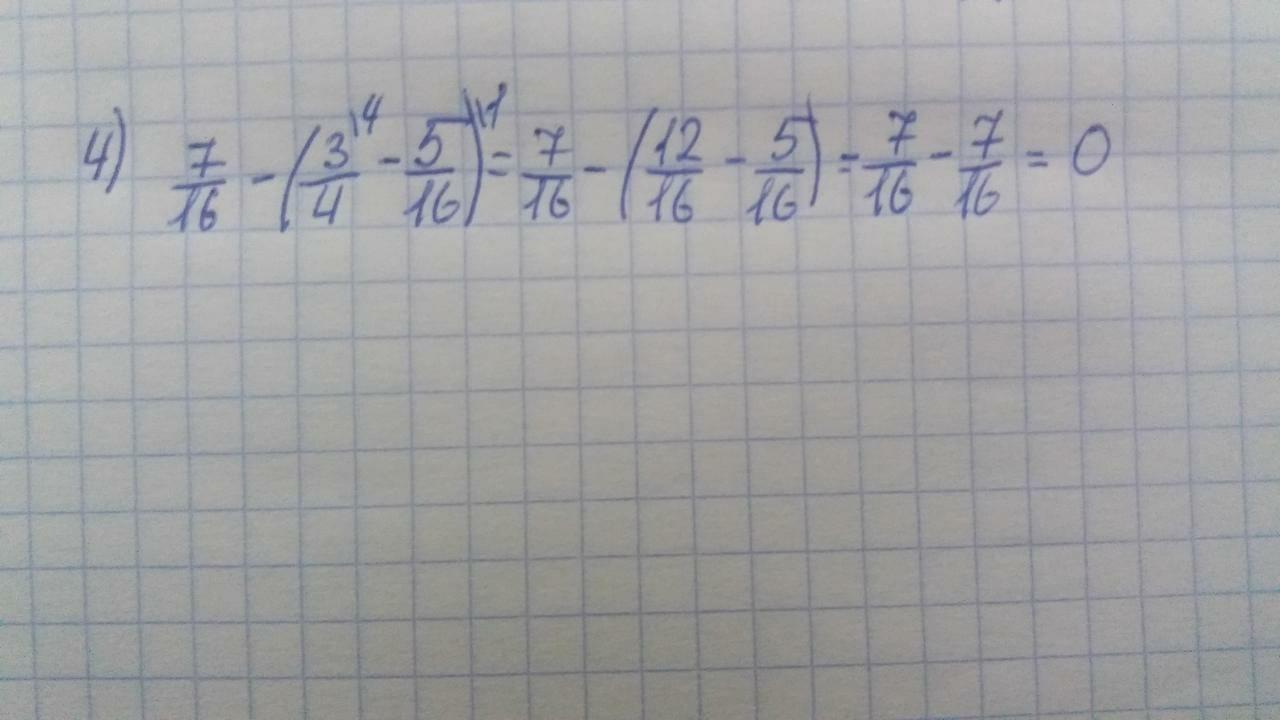 4) 7/16 - (3/4\4 - 5/16)\1 = 7/16 - (12/16 - 5/16) = 7/16 - 7/16 = 0